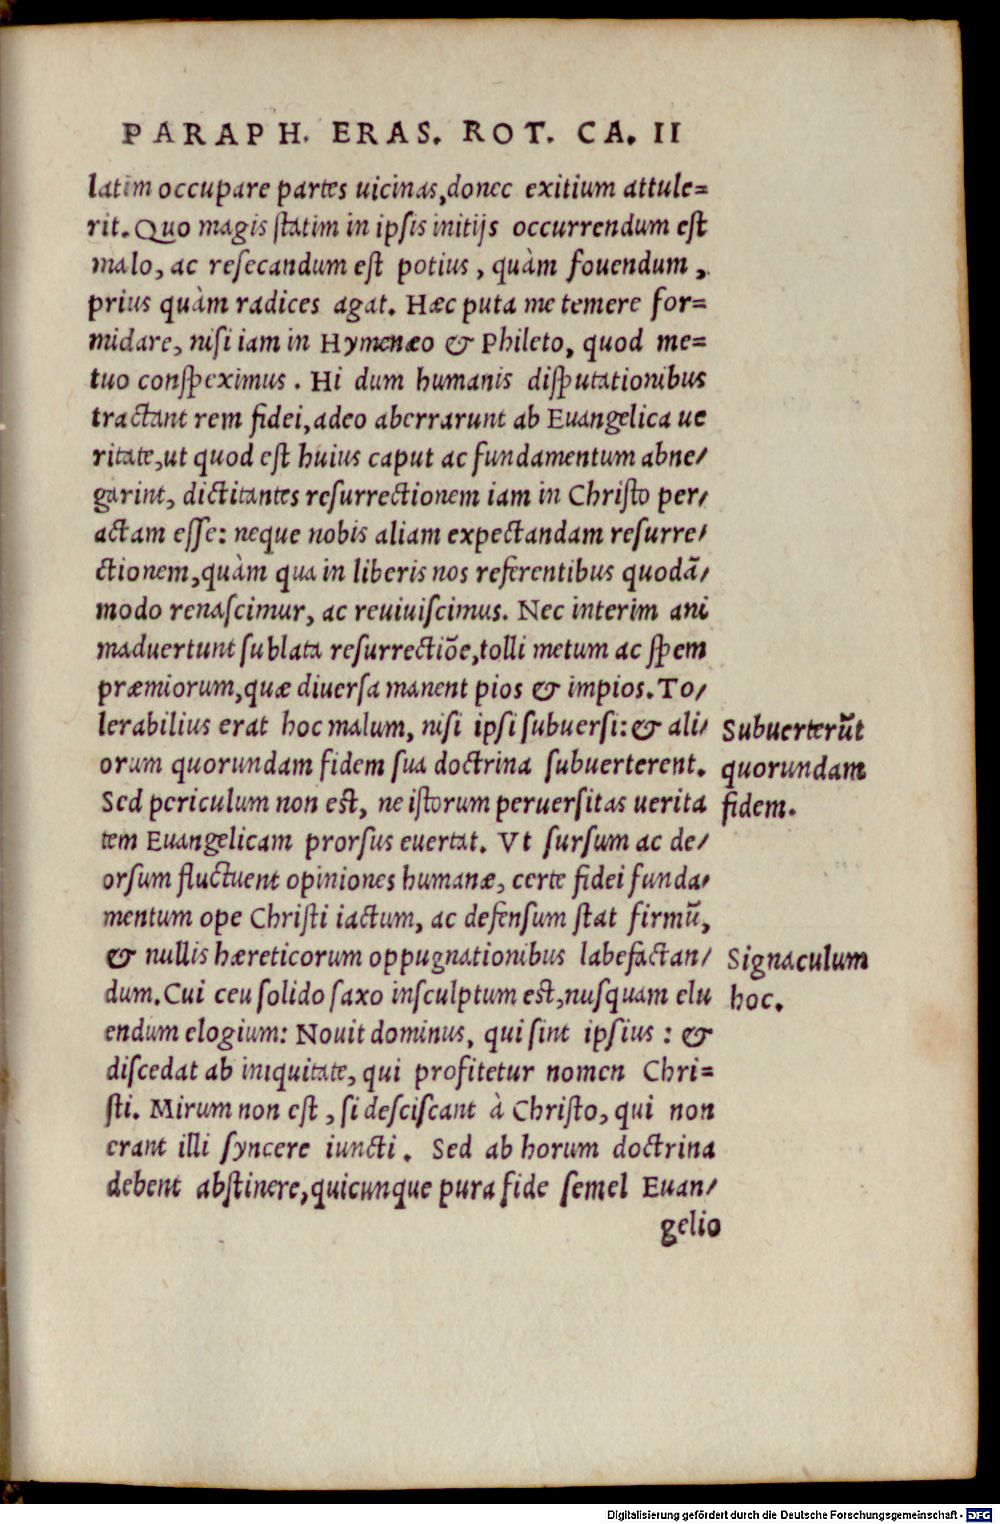 PARAPH. ERAS. ROT. CA. II
latim occupare partes uicinas, donec exitium attule=
rit. Quo magis statim in ipsis initijs occurrendum est
malo, ac resecandum est potius, quàm fouendum,
prius quàm radices agat. Hæc puta me temere for=
midare, nisi iam in Hymenæo & Phileto, quod me=
tuo conspeximus. Hi dum humanis disputationibus
tractant rem fidei, adeo aberrarunt ab Euangelica ue
ritate, ut quod est huius caput ac fundamentum abne/
garint, dictitantes resurrectionem iam in Christo per/
actam esse: neque nobis aliam expectandam resurre/
ctionem, quàm qua in liberis nos referentibus quodã/
modo renascimur, ac reuiuiscimus. Nec interim ani
maduertunt sublata resurrectiõe, tolli metum ac spem
præmiorum, quæ diuersa manent pios & impios. To/
lerabilius erat hoc malum, nisi ipsi subuersi: & ali/
orum quorundam fidem sua doctrina subuerterent.
Sed periculum non est, ne istorum peruersitas uerita
tem Euangelicam prorsus euertat. Vt sursum ac de/
orsum fluctuent opiniones humanæ, certe fidei funda/
mentum ope Christi iactum, ac defensum stat firmũ,
& nullis hæreticorum oppugnationibus labefactan/
dum. Cui ceu solido saxo insculptum est, nusquam elu
endum elogium: Nouit dominus, qui sint ipsius: &
discedat ab iniquitate, qui profitetur nomen Chri=
sti. Mirum non est, si desciscant à Christo, qui non
erant illi syncere iuncti. Sed ab horum doctrina
debent abstinere, quicunque pura fide semel Euan/
gelio
Subuerterũt
quorundam
fidem.
Signaculum
hoc.
Digitalisierung gefördert durch die Deutsche Forschungsgemeinschaft - DFG